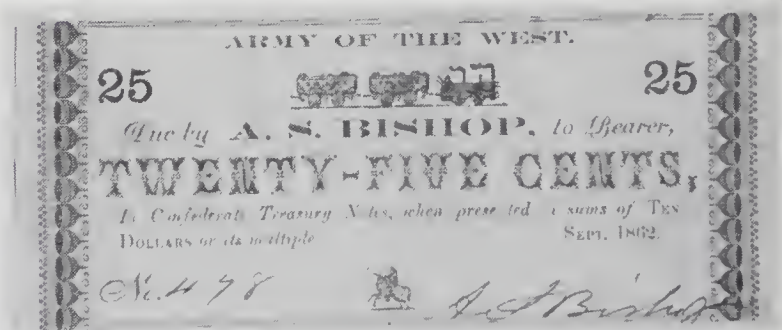 ARMY OF THE WEST.
25 25
Due by A. S. BISHOP, to Bearer,
TWENTY-FIVE CENTS,
In Confederate Treasury Notes, when presented in sums of TEN
DOLLARS or its multiple SEPT. 1862.
No. 478 A. S. Bishop